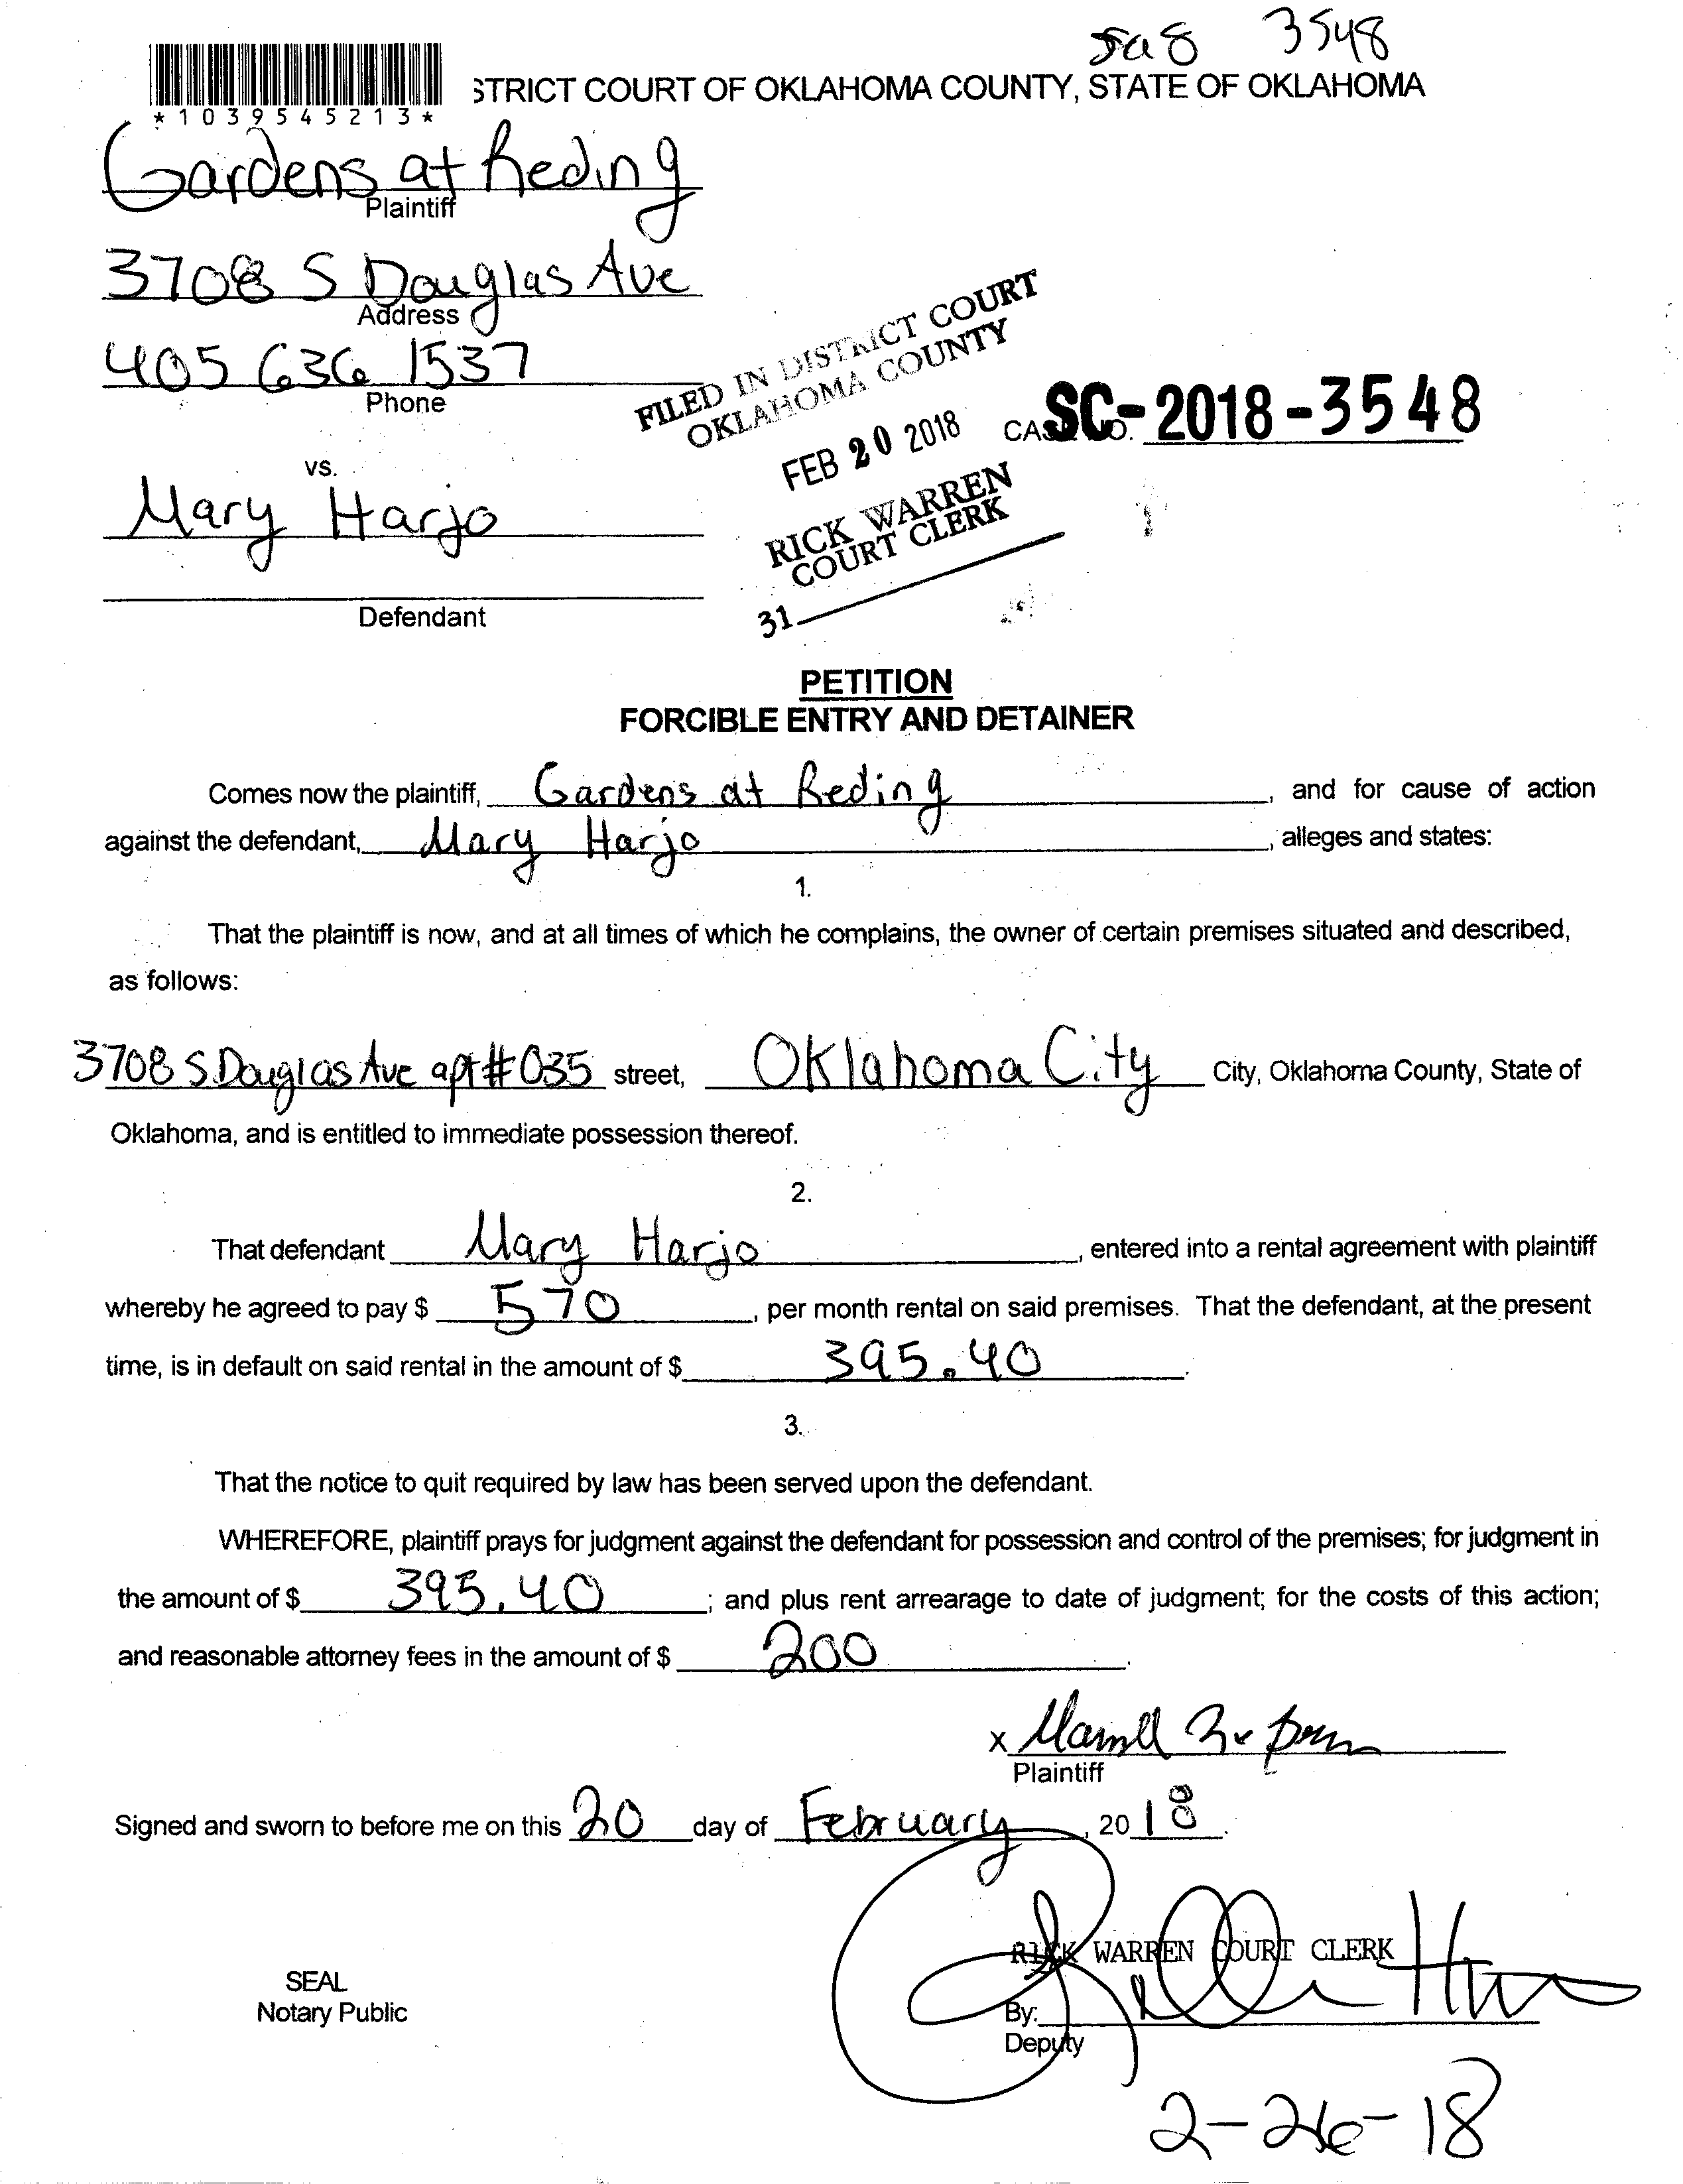 3548
STRICT COURT OF OKLAHOMA COUNTY, STATE OF OKLAHOMA
*1039545213*
Gardens at Reding
Plaintiff
3708 S Douglas Ave
Address
405 636 1537
Phone
FILED IN DISTRICT COURT
OKLAHOMA COUNTY
FEB 20 2018
RICK WARREN
COURT CLERK
31
CASE NO. SC-2018-3548
vs.
Mary Harjo
Defendant
PETITION
FORCIBLE ENTRY AND DETAINER
Comes now the plaintiff, Gardens at Reding, and for cause of action
against the defendant, Mary Harjo, alleges and states:
1.
That the plaintiff is now, and at all times of which he complains, the owner of certain premises situated and described,
as follows:
3708 S Douglas Ave apt # 035 street, Oklahoma City City, Oklahoma County, State of
Oklahoma, and is entitled to immediate possession thereof.
2.
That defendant Mary Harjo, entered into a rental agreement with plaintiff
whereby he agreed to pay $ 570, per month rental on said premises. That the defendant, at the present
time, is in default on said rental in the amount of $ 395.40.
3.
That the notice to quit required by law has been served upon the defendant.
WHEREFORE, plaintiff prays for judgment against the defendant for possession and control of the premises; for judgment in
the amount of $ 395.40; and plus rent arrearage to date of judgment; for the costs of this action;
and reasonable attorney fees in the amount of $ 200.
x
Plaintiff
Signed and sworn to before me on this 20 day of February, 2018.
RICK WARREN COURT CLERK
SEAL
Notary Public
By:
Deputy
2-26-18